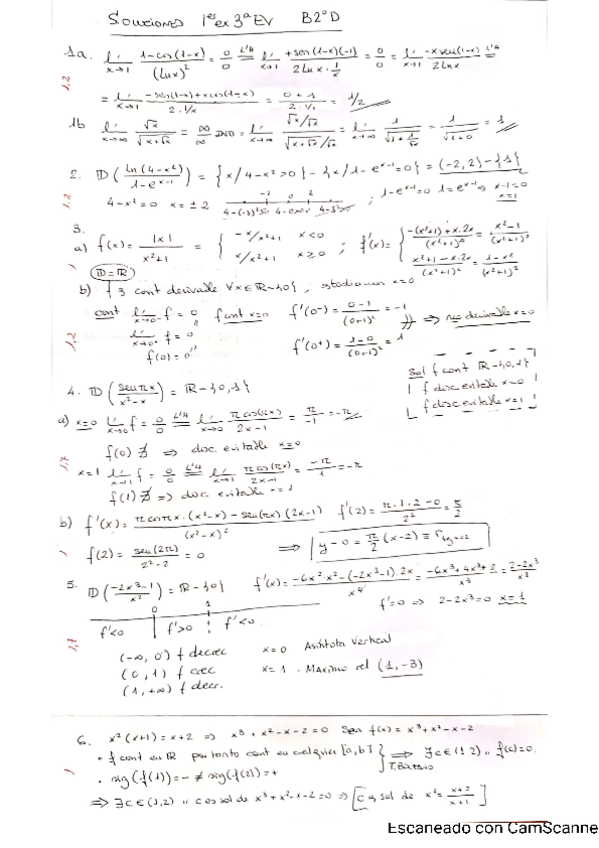 Soluciones 1er ex 3ª EV B2ºD
1a. lim x→1 1-cos(1-x)/(Lnx)² = 0/0 L'H = lim x→1 +sen(1-x)(-1)/2Lnx·1/x = 0/0 = lim x→1 -xsen(1-x)/2Lnx L'H =
1,2
= lim x→1 -sen(1-x)+xcos(1-x)/2·1/x = 0+1/2·1/1 = 1/2
1b lim x→∞ √x/√(x+√x) = ∞/∞ = lim x→∞ √x/√x / √(x+√x)/√x = lim x→∞ 1/√(1+1/√x) = 1/√(1+0) = 1
2. D(ln(4-x²)/1-e^(x-1)) = {x/4-x²>0} - {x/1-e^(x-1)=0} = (-2,2)-{1}
1,2
4-x²=0 x=±2 ; 1-e^(x-1)=0 1=e^(x-1) ⇒ x-1=0 x=1
3.
a) f(x) = |x|/x²+1 = { -x/x²+1 x<0 ; x/x²+1 x≥0 ; f'(x) = { -(x²+1)+x·2x/(x²+1)² = x²-1/(x²+1)² ; x²+1-x·2x/(x²+1)² = 1-x²/(x²+1)²
D=R
b) f es cont derivable ∀x∈R-{0}, estudiamos x=0
cont lim x→0⁻ f = 0 f cont x=0 f'(0⁻) = 0-1/(0+1)² = -1
lim x→0⁺ f = 0 ⇒ no derivable x=0
1,2
f(0) = 0 f'(0⁺) = 1-0/(0+1)² = 1
4. D(senπx/x²-x) = R-{0,1}
Sol f cont R-{0,1}
f disc evitable x=0
f disc evitable x=1
a) x=0 lim x→0 f = 0/0 L'H = lim x→0 πcos(πx)/2x-1 = π/-1 = -π
f(0) ∄ ⇒ disc. evitable x=0
1,7
x=1 lim x→1 f = 0/0 L'H = lim x→1 πcos(πx)/2x-1 = -π/1 = -π
f(1) ∄ ⇒ disc. evitable x=1
b) f'(x) = πcosπx·(x²-x)-sen(πx)(2x-1)/(x²-x)² f'(2) = π·1·2-0/2² = π/2
f(2) = sen(2π)/2²-2 = 0 ⇒ y-0 = π/2(x-2) ≡ r tg x=2
5. D(-2x³-1/x²) = R-{0} f'(x) = -6x²·x²-(-2x³-1)·2x/x⁴ = -6x³+4x³+2/x³ = 2-2x³/x³
0 1 f'=0 ⇒ 2-2x³=0 x=1
f'<0 f'>0 f'<0
1,7
(-∞,0) f decrec x=0 Asíntota Vertical
(0,1) f crec x=1 . Máximo rel (1,-3)
(1,+∞) f decr.
6. x²(x+1)=x+2 ⇒ x³+x²-x-2=0 Sea f(x)=x³+x²-x-2
• f cont en R por tanto cont en cualquier [a,b] ⇒ ∃c∈(1,2) // f(c)=0.
• sig(f(1))=- ≠ sig(f(2))=+ T. Bolzano
⇒ ∃c∈(1,2) // c es sol de x³+x²-x-2=0 ⇒ [c es sol de x²=x+2/x+1]
Escaneado con CamScanne